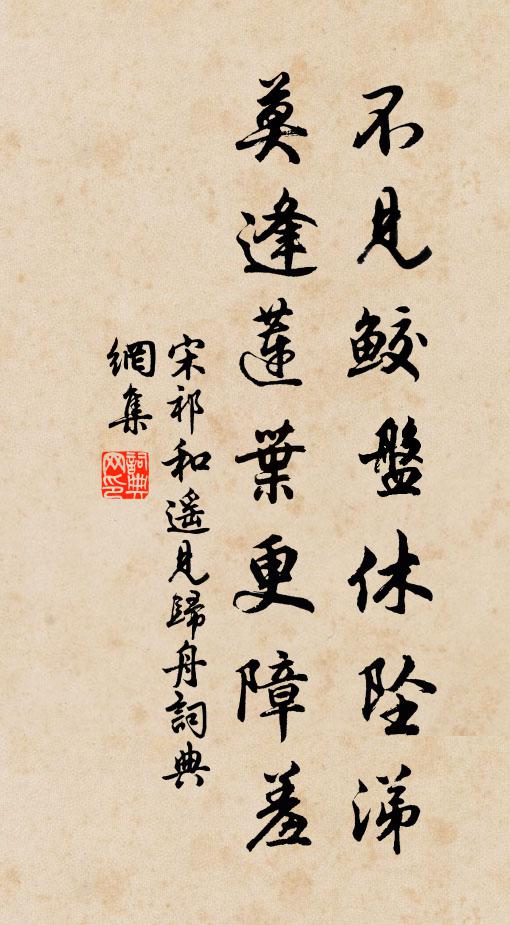 不見鮫盤休墜涕
莫逢蓮葉更障羞
宋祁和遥見歸舟詞典
網集
詞典網印